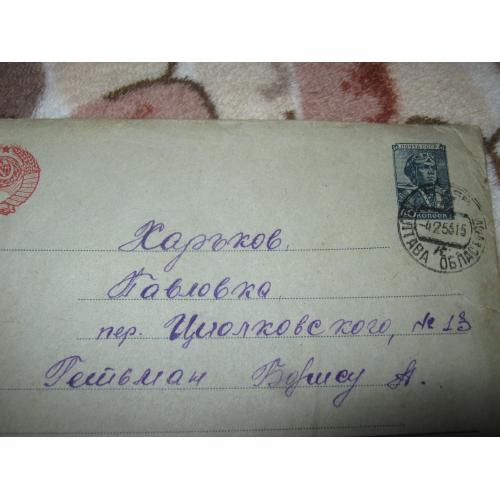 ПОЧТА СССР
КОПЕЕК
4 2 53 15
ТАВА ОБЛАС
Харьков,
Павловка,
пер. Циолковского, № 13
Гетьман Борису А.